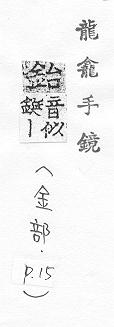 龍龕手鏡
鉛音似
鋋丨
(金部．p.15)